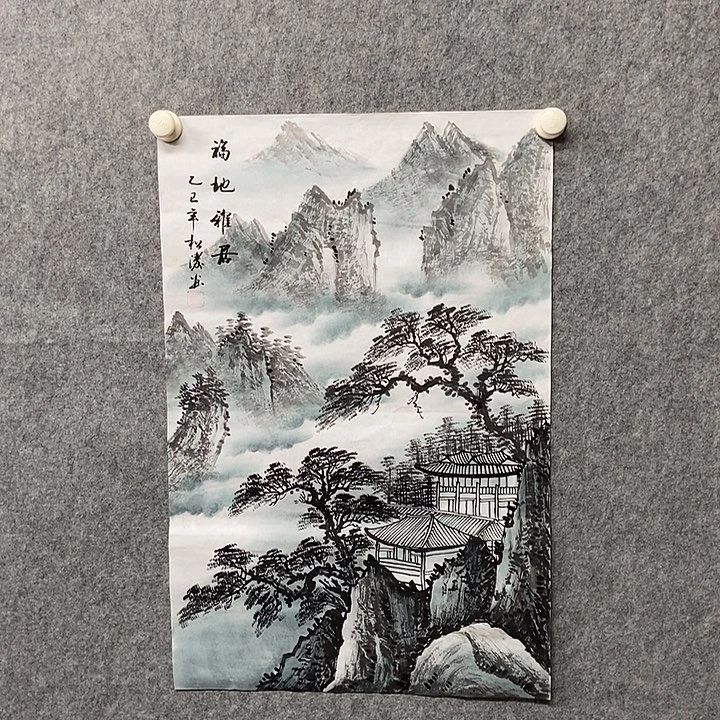 福地雅居
乙巳年松涛画